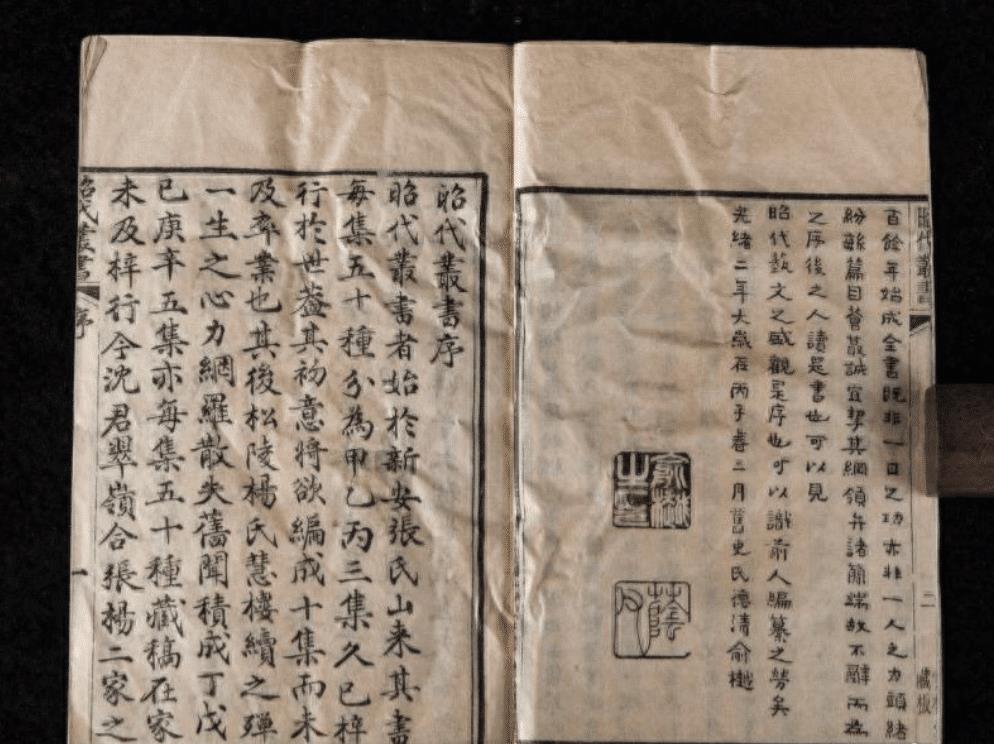 昭代叢書 二 藏板
百餘年始成全書既非一日之功亦非一人之力頭緒
紛繇篇目薈蕞誠宜挈其綱領弁諸簡端故不辭而為
之序後之人讀是書也可以見
昭代藝文之盛觀是序也可以識前人編纂之勞矣
光緒二年大歲在丙子春三月舊史氏德清俞樾
昭代叢書序
昭代叢書者始於新安張氏山来其書
每集五十種分為甲乙丙三集久已梓
行於世蓋其初意將欲編成十集而未
及卒業也其後松陵楊氏慧樓續之殫
一生之心力網羅散失舊聞積成丁戊
已庚辛五集亦每集五十種藏稿在家
未及梓行今沈君翠嶺合張楊二家之
昭代叢書 序 一